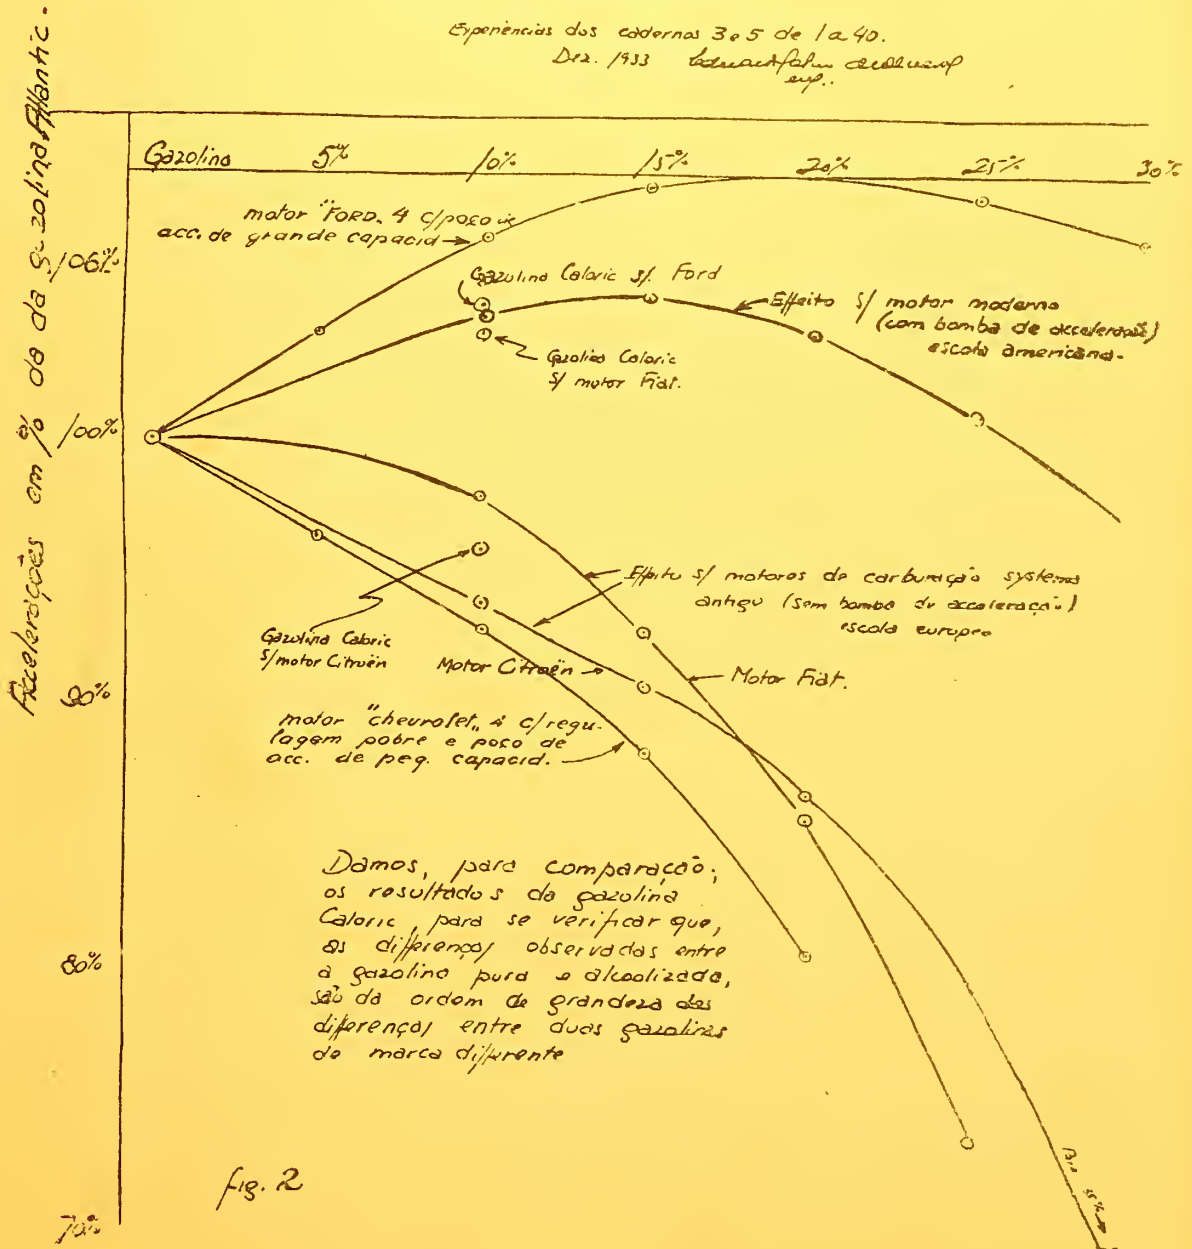 Experiencias dos cadernos 3 e 5 de 1 a 40.
Dez. 1933
Accelerações em % da da gazolina Atlantic.
Gazolina 5% 10% 15% 20% 25% 30%
motor "FORD" 4 c/poço de
acc. de grande capacid
106%
Gazolina Caloric s/. Ford
Effeito s/ motor moderno
(com bomba de acceleração)
escola americana.
Gazolina Caloric
s/ motor Fiat.
100%
Effeito s/ motores de carburação systema
antigo (sem bomba de acceleração)
escola europea
Gazolina Caloric
s/motor Citroën
Motor Citroën
Motor Fiat.
90%
motor "chevrolet" 4 c/regu-
lagem pobre e poço de
acc. de peq. capacid.
Damos, para comparação,
os resultados da gazolina
Caloric, para se verificar que,
as differenças observadas entre
a gazolina pura e alcoolizada,
são da ordem de grandeza das
differenças entre duas gazolinas
de marca differente
80%
fig. 2
70%